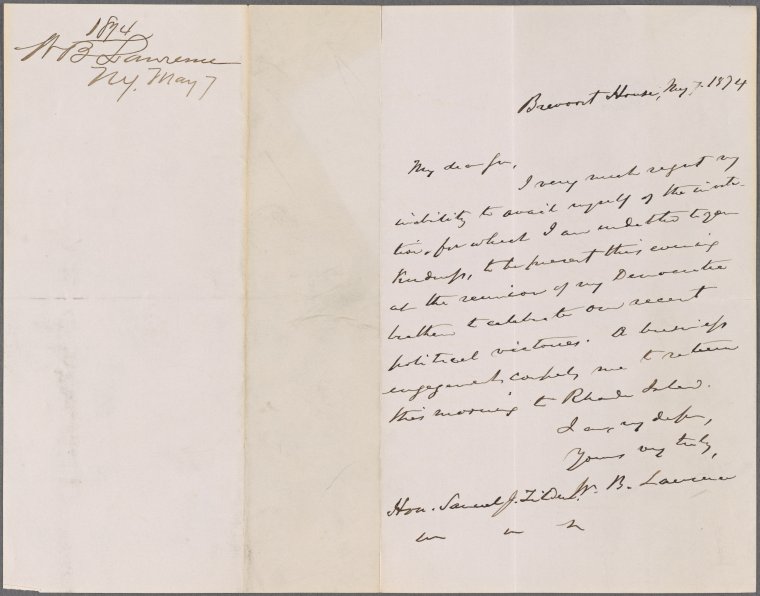 1874
W B Lawrence
NY. May 7
Brevoort House, May 7. 1874
My dear Sir,
I very much regret my
inability to avail myself of the invita-
tion, for which I am indebted to your
kindness, to be present this evening
at the reunion of my Democratic
brethren to celebrate our recent
political victories. A business
engagement compels me to return
this morning to Rhode Island.
I am, my dear Sir,
Yours very truly,
W. B. Lawrence
Hon. Samuel J. Tilden